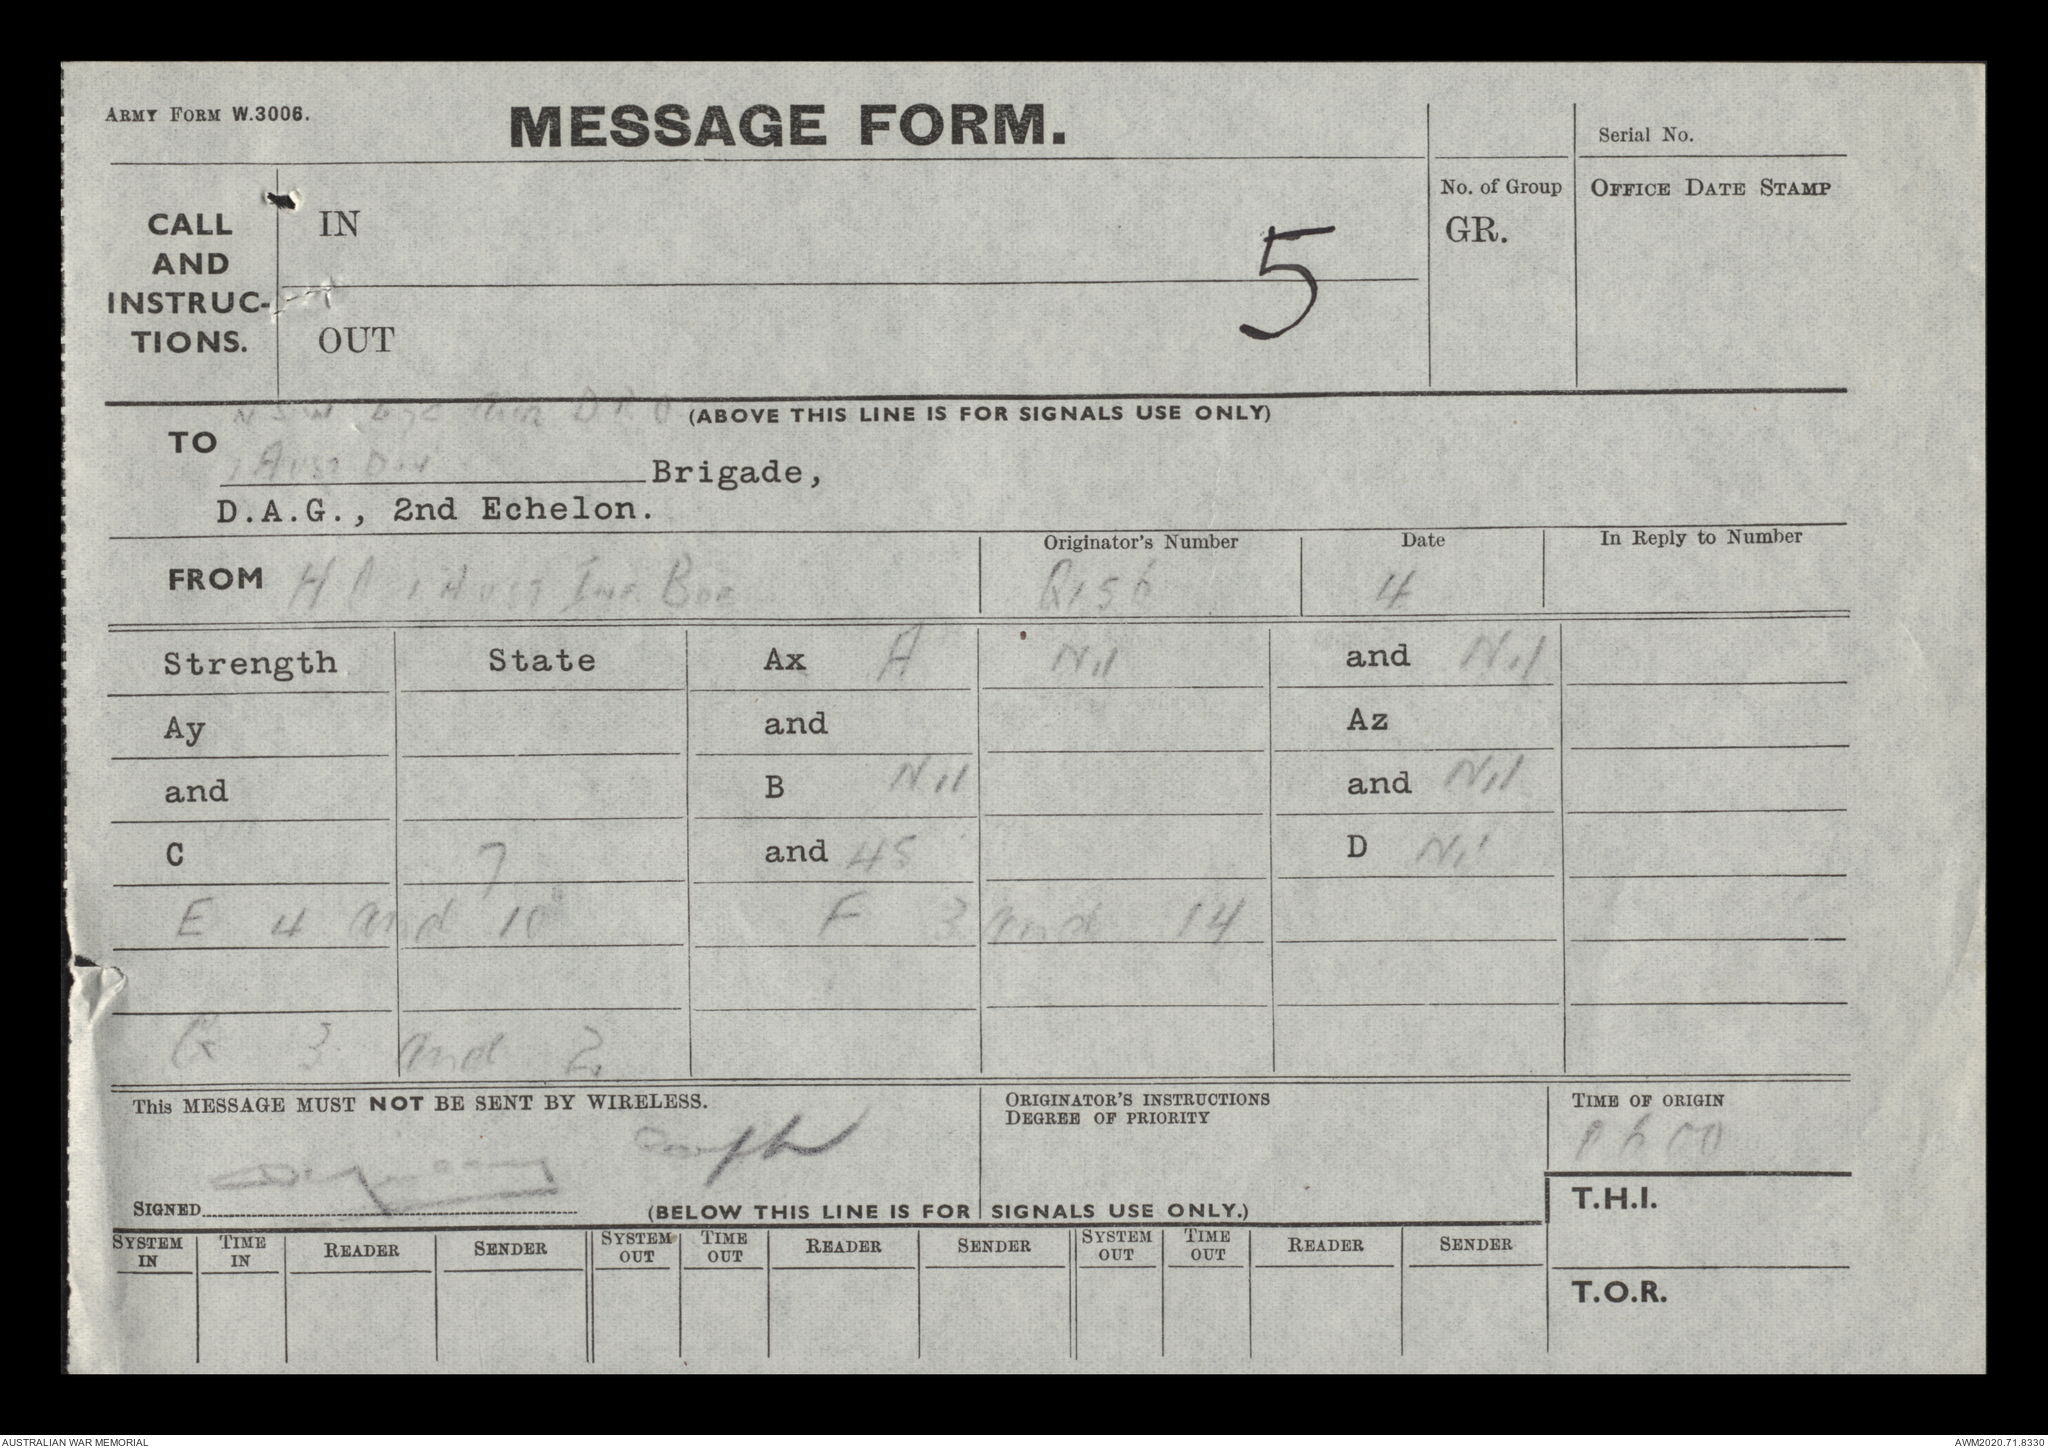 ARMY FORM W.3006.
MESSAGE FORM.
Serial No.
CALL
AND
INSTRUC-
TIONS.
IN
OUT
5
No. of Group
GR.
OFFICE DATE STAMP
(ABOVE THIS LINE IS FOR SIGNALS USE ONLY)
N S W
TO
1 Aust Div
Brigade,
D.A.G., 2nd Echelon.
FROM H Q 1 Aust Inf Bde
Originator's Number
Q156
Date
4
In Reply to Number
Strength State Ax A Nil and Nil
Ay and Az
and B Nil and Nil
C 7 and 45 D Nil
E 4 and 10 F 3 and 14
G 3 and 2
This MESSAGE MUST NOT BE SENT BY WIRELESS.
ORIGINATOR'S INSTRUCTIONS
DEGREE OF PRIORITY
TIME OF ORIGIN
Capt
SIGNED
(BELOW THIS LINE IS FOR SIGNALS USE ONLY.)
T.H.I.
SYSTEM IN TIME IN READER SENDER SYSTEM OUT TIME OUT READER SENDER SYSTEM OUT TIME OUT READER SENDER
T.O.R.
AUSTRALIAN WAR MEMORIAL
AWM2020.71.8330